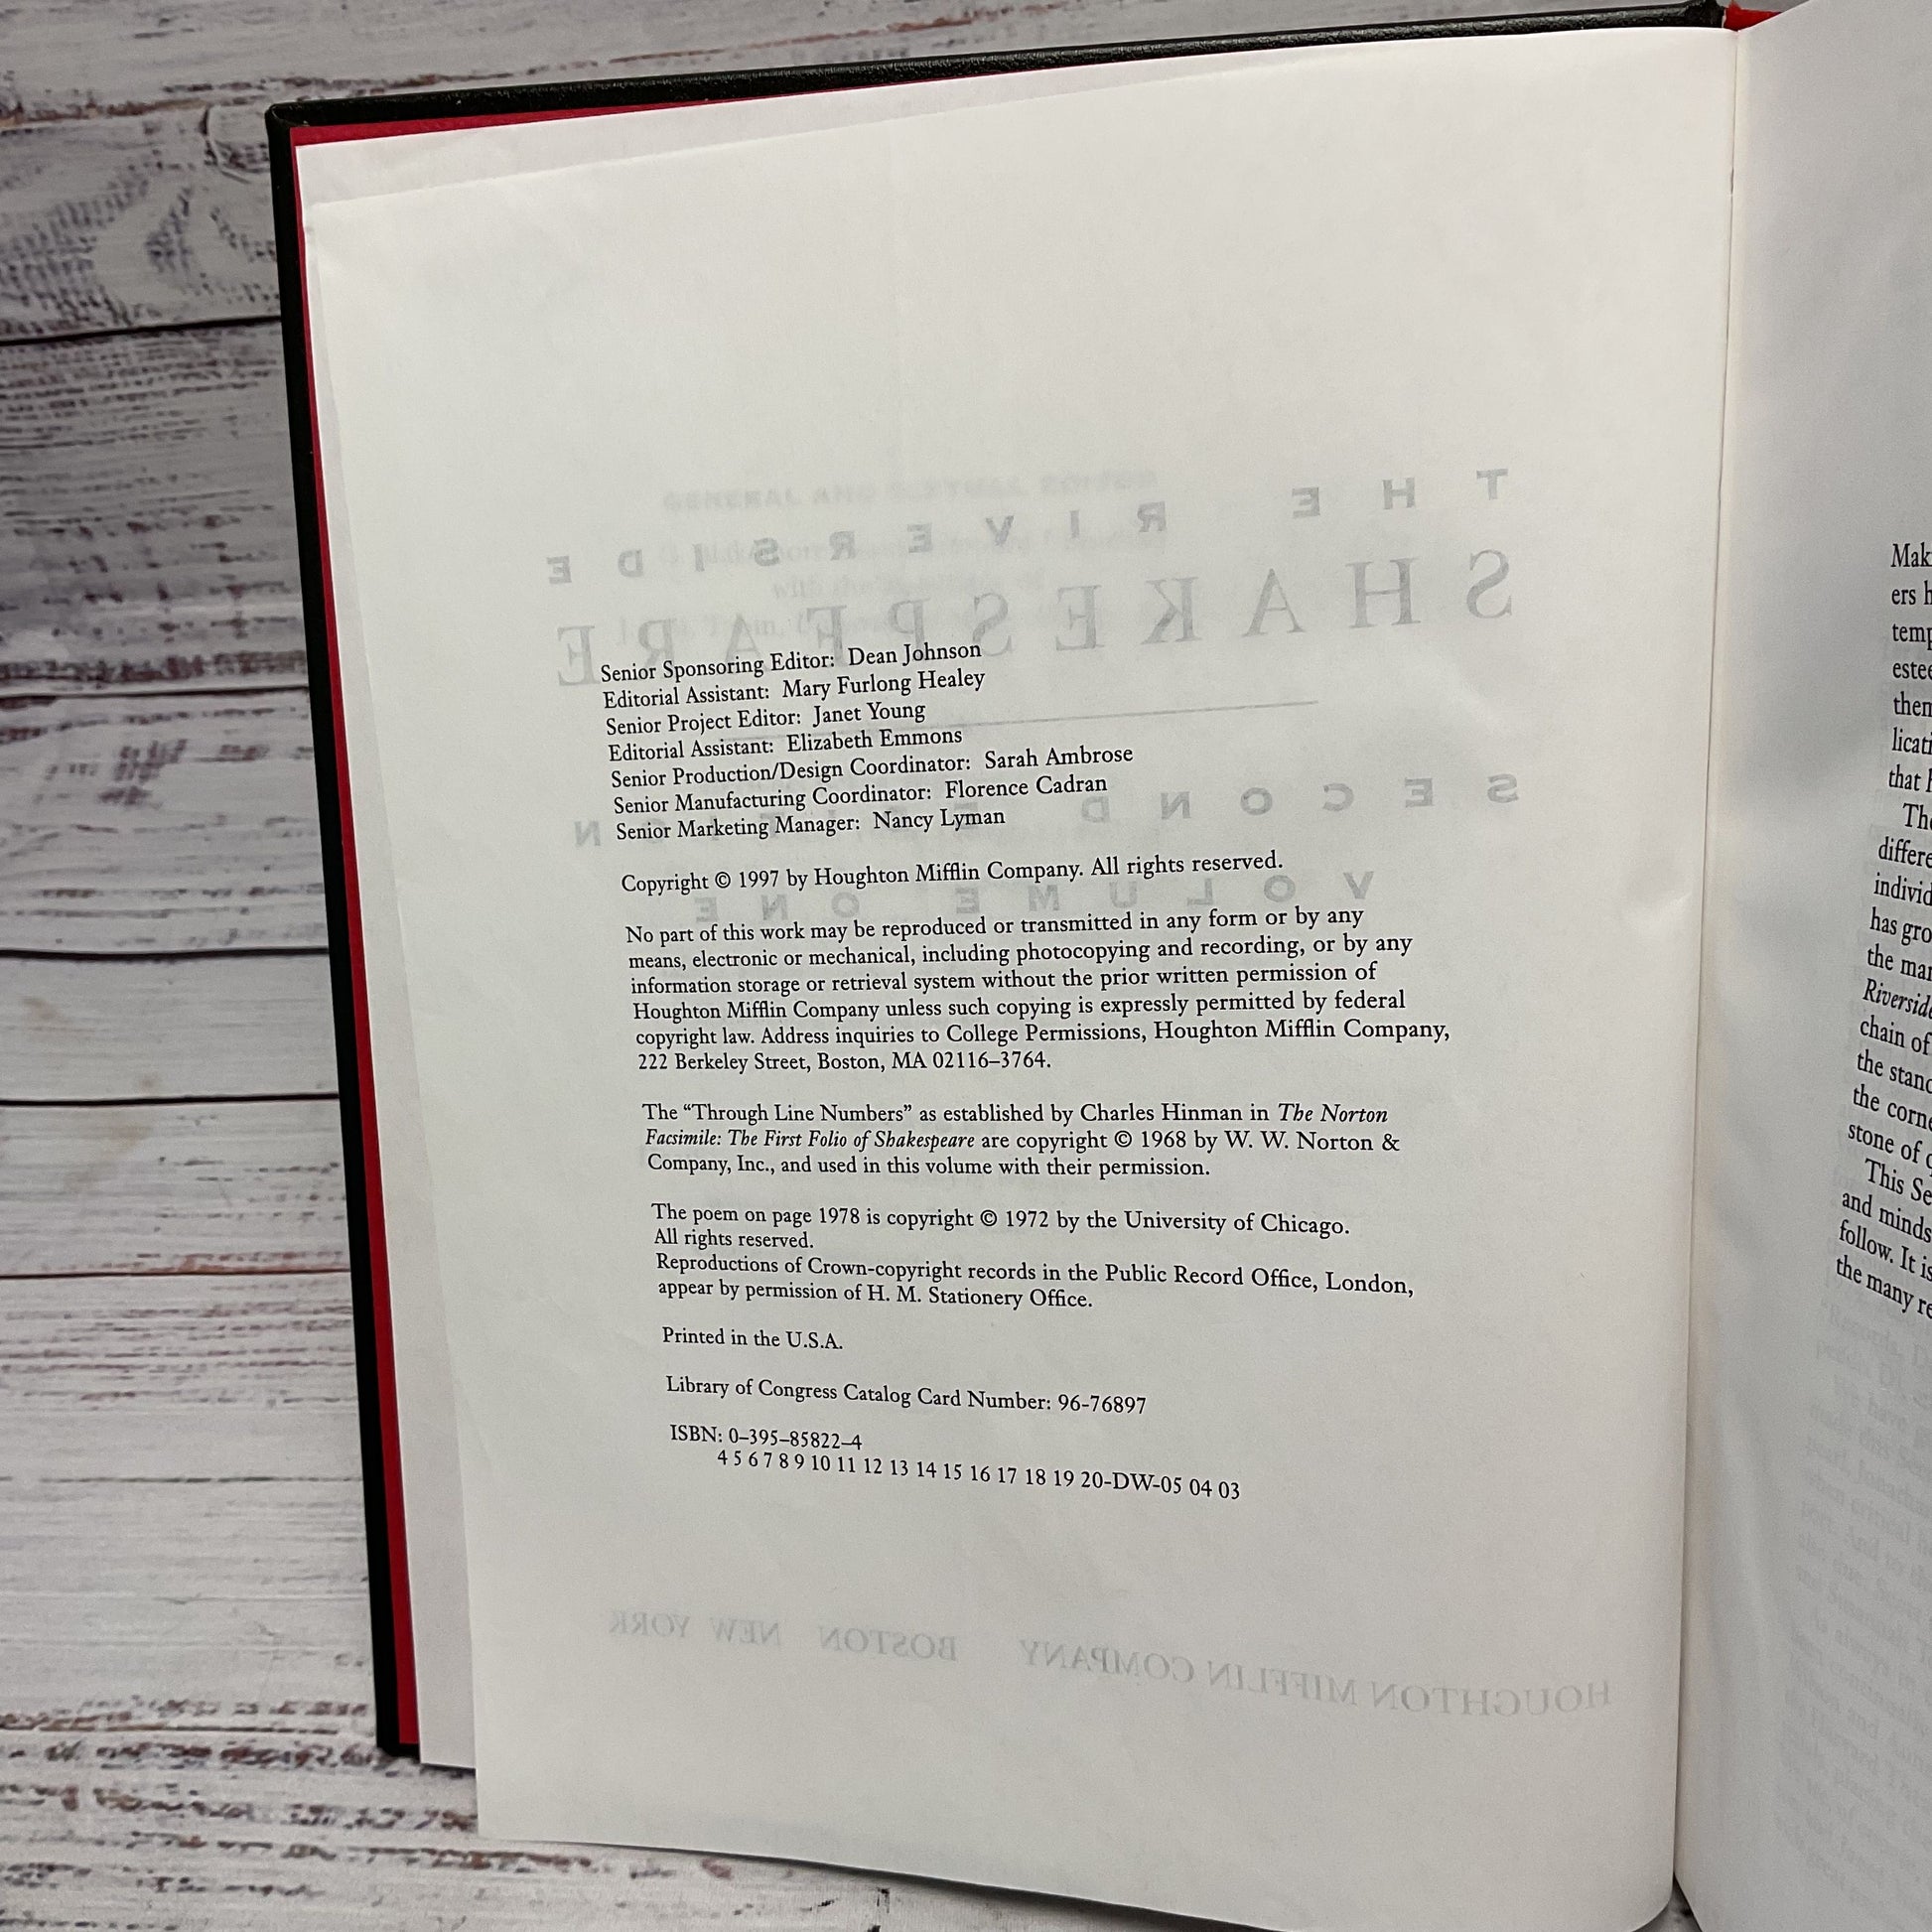 Senior Sponsoring Editor: Dean Johnson
Editorial Assistant: Mary Furlong Healey
Senior Project Editor: Janet Young
Editorial Assistant: Elizabeth Emmons
Senior Production/Design Coordinator: Sarah Ambrose
Senior Manufacturing Coordinator: Florence Cadran
Senior Marketing Manager: Nancy Lyman
Copyright © 1997 by Houghton Mifflin Company. All rights reserved.
No part of this work may be reproduced or transmitted in any form or by any
means, electronic or mechanical, including photocopying and recording, or by any
information storage or retrieval system without the prior written permission of
Houghton Mifflin Company unless such copying is expressly permitted by federal
copyright law. Address inquiries to College Permissions, Houghton Mifflin Company,
222 Berkeley Street, Boston, MA 02116–3764.
The “Through Line Numbers” as established by Charles Hinman in The Norton
Facsimile: The First Folio of Shakespeare are copyright © 1968 by W. W. Norton &
Company, Inc., and used in this volume with their permission.
The poem on page 1978 is copyright © 1972 by the University of Chicago.
All rights reserved.
Reproductions of Crown-copyright records in the Public Record Office, London,
appear by permission of H. M. Stationery Office.
Printed in the U.S.A.
Library of Congress Catalog Card Number: 96-76897
ISBN: 0–395–85822–4
4 5 6 7 8 9 10 11 12 13 14 15 16 17 18 19 20-DW-05 04 03
THE RIVERSIDE
SHAKESPEARE
SECOND EDITION
VOLUME ONE
HOUGHTON MIFFLIN COMPANY BOSTON NEW YORK
Mak
ers h
temp
estee
them
licati
that h
The
differe
individ
has gro
the mar
Riverside
chain of
the stand
the corne
stone of
This Se
and minds
follow. It is
the many re